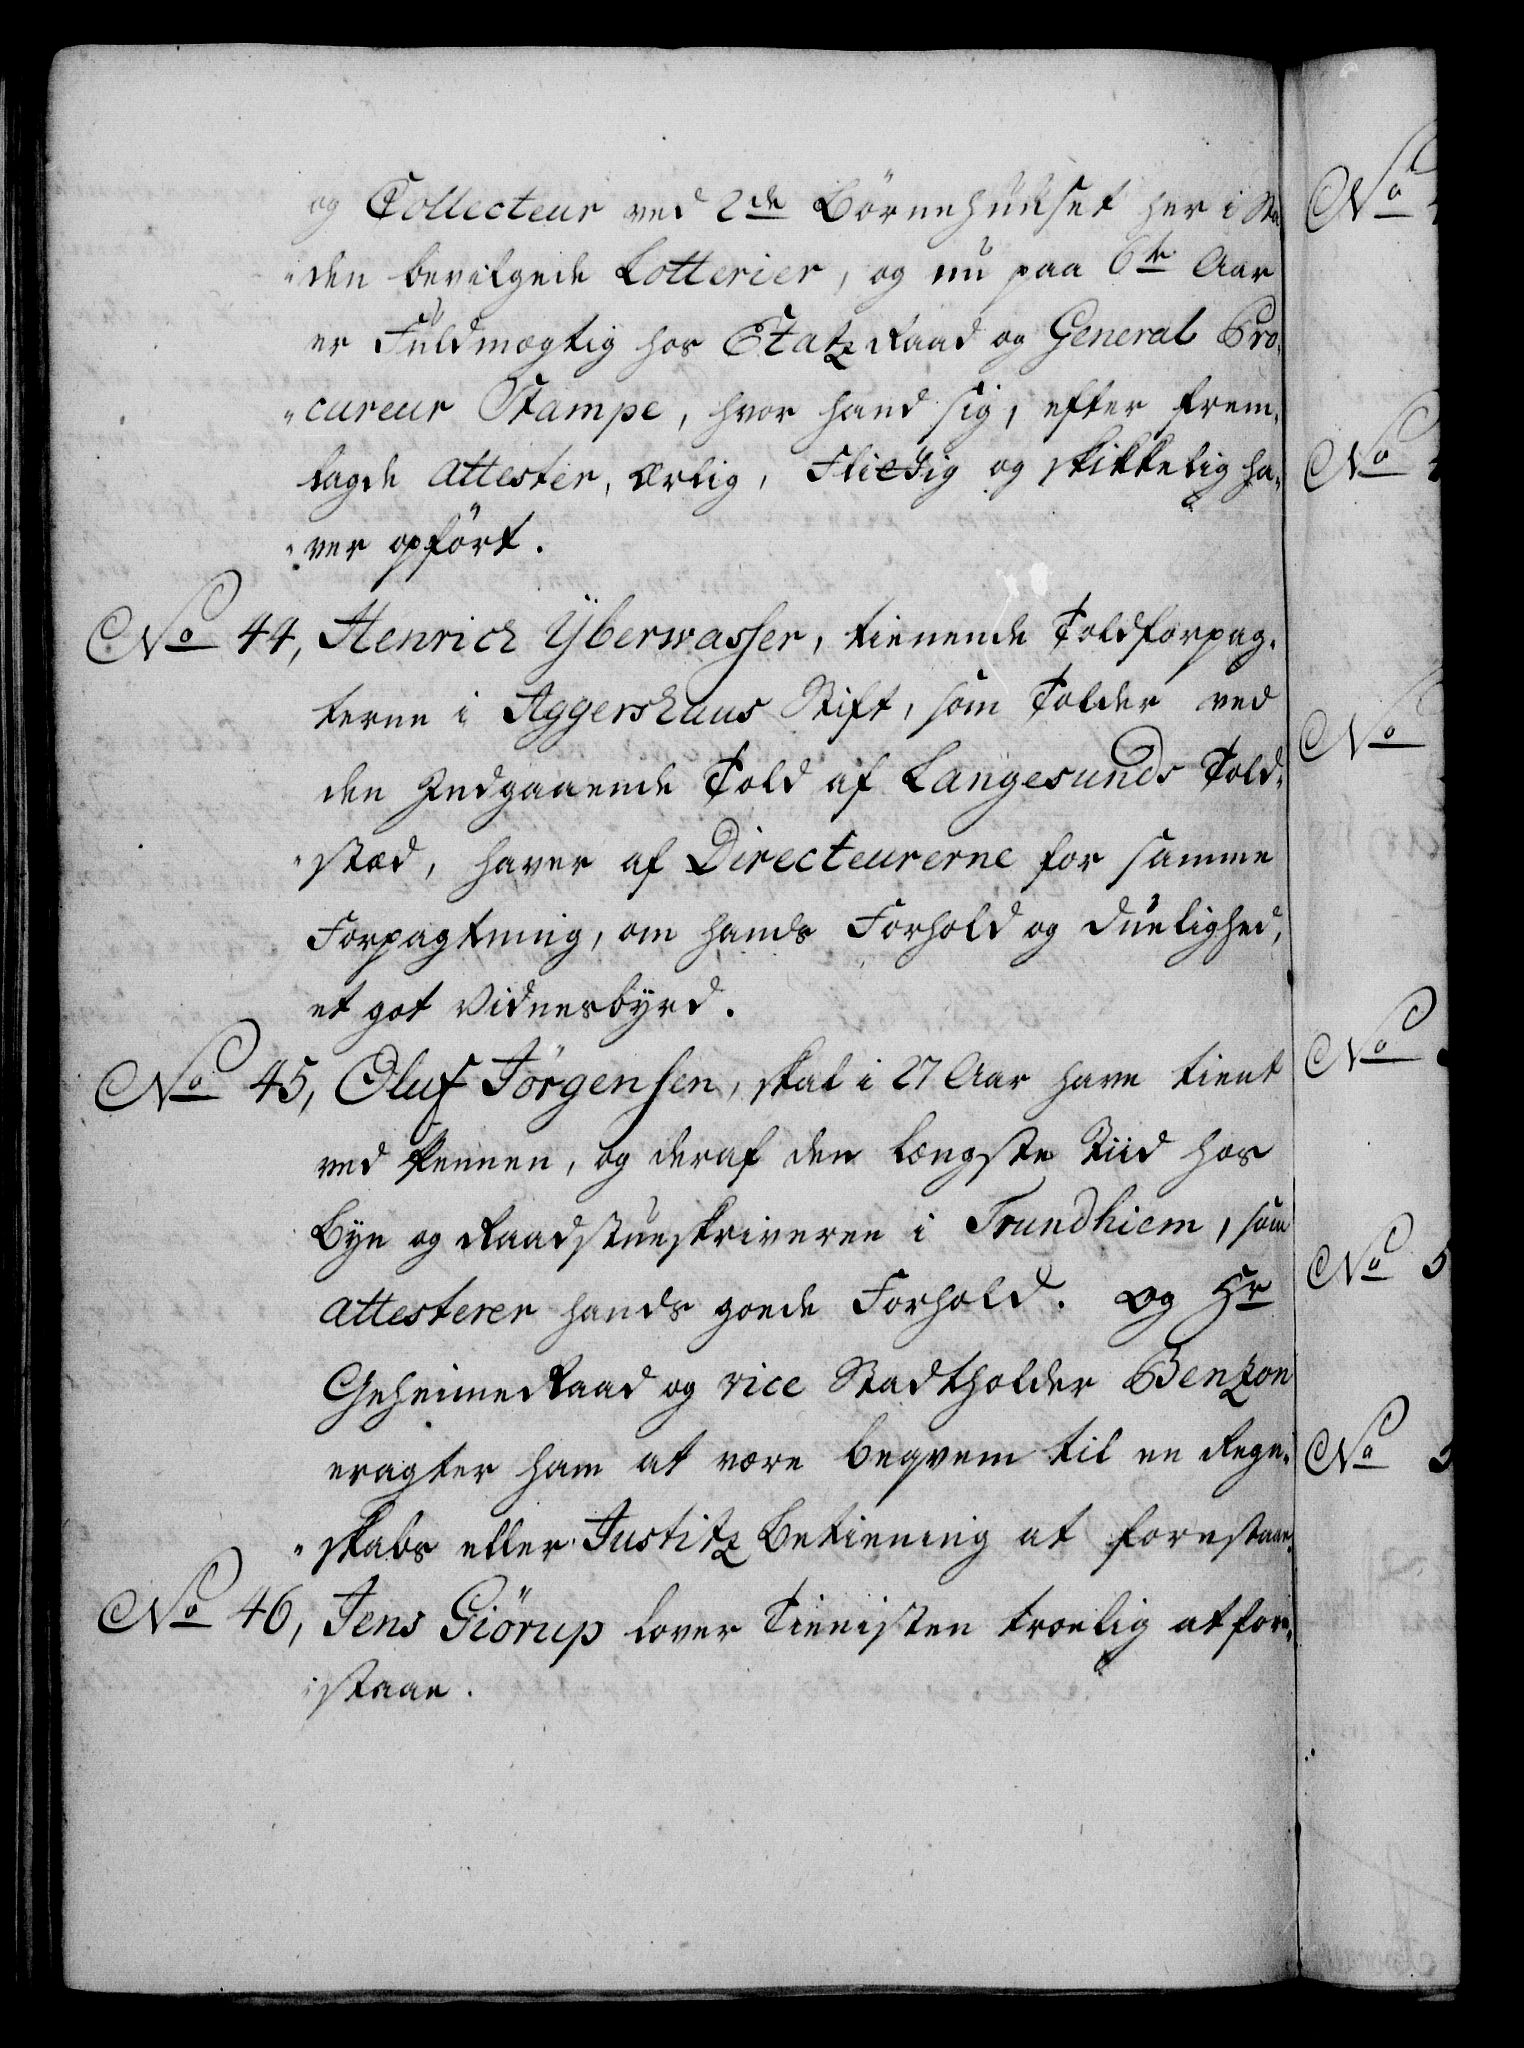 og Collecteur ved 2de Börnehuuset her i Sta
"den bevilgede Lotterier, og nu paa 6te Aar
er Fuldmægtig hos Etatz Raad og General Pro-
"cureur Stampe, hvor hand sig, efter frem-
lagde Attester, Ærlig, Fliedig og skikkelig ha-
"ver opført.
No 44, Henrich Ÿberwasser, tienende Toldforpag-
terne i Aggershuus Stift, som Tolder ved
den Indgaaende Told af Langesunds Told-
"stæd, haver af Directeurerne for samme
Forpagtning, om hands Forhold og duelighed,
et got Vidnesbyrd.
No 45, Oluf Jörgensen, skal i 27 Aar have tient
ved Pennen, og deraf den længste Tiid hos
Bye og Raadstueskriveren i Trundhiem, som
Attesterer hands goede Forhold. Og Hr
GeheimeRaad og vice Stadtholder Benzon
eragter ham at være beqvem til en Regn-
"skabs eller Justitz Betiening at forestaae.
No 46, Jens Giörup lover Tienisten troelig at fore-
"staae.
No
No
No
No
No 5
No